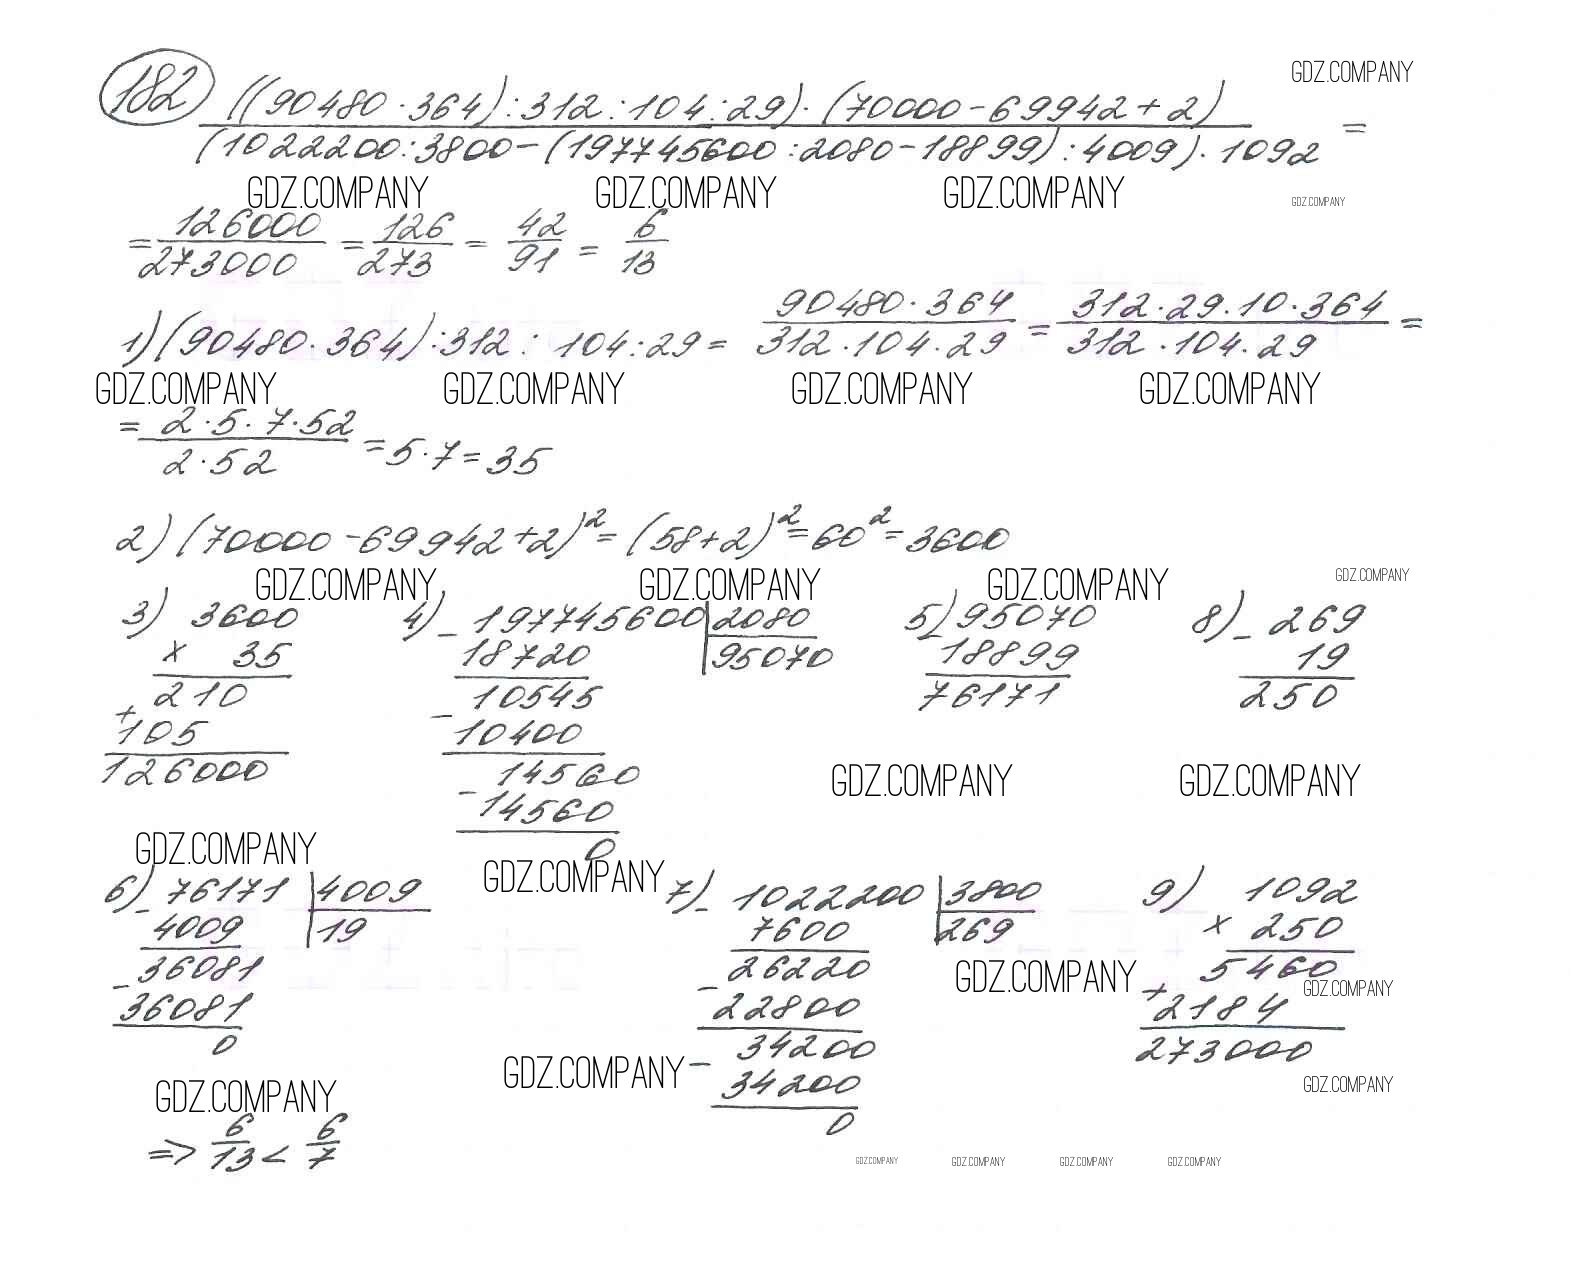 182 ((90480 · 364) : 312 : 104 : 29) · (70000 - 69942 + 2)
(1022200 : 3800 - (197745600 : 2080 - 18899) : 4009) · 1092 =
GDZ.COMPANY
GDZ.COMPANY GDZ.COMPANY GDZ.COMPANY GDZ.COMPANY
= 126000/273000 = 126/273 = 42/91 = 6/13
1) (90480 · 364) : 312 : 104 : 29 = 90480 · 364/312 · 104 · 29 = 312 · 29 · 10 · 364/312 · 104 · 29 =
GDZ.COMPANY GDZ.COMPANY GDZ.COMPANY GDZ.COMPANY
= 2 · 5 · 7 · 52/2 · 52 = 5 · 7 = 35
2) (70000 - 69942 + 2)² = (58 + 2)² = 60² = 3600
GDZ.COMPANY GDZ.COMPANY GDZ.COMPANY GDZ.COMPANY
3) 3600
× 35
210
+
105
126000
4) - 197745600 | 2080
18720 | 95070
10545
-
10400
14560
-
14560
0
5) 95070
18899
76171
8) - 269
19
250
GDZ.COMPANY GDZ.COMPANY
GDZ.COMPANY GDZ.COMPANY
6) - 76171 | 4009
4009 | 19
- 36081
36081
0
7) - 1022200 | 3800
7600 | 269
- 26220
22800
- 34200
34200
0
9) 1092
× 250
5460
+ 2184
273000
GDZ.COMPANY GDZ.COMPANY
GDZ.COMPANY GDZ.COMPANY GDZ.COMPANY
=> 6/13 < 6/7
GDZ.COMPANY GDZ.COMPANY GDZ.COMPANY GDZ.COMPANY